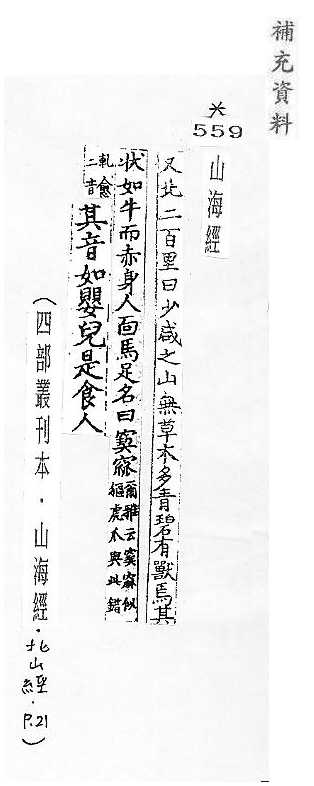 補充資料
※
559
山海經
又北二百里曰少咸之山無草木多青碧有獸焉其
狀如牛而赤身人面馬足名曰窫窳爾雅云窫窳似貙虎爪與此錯
軋愈二音其音如嬰兒是食人
(四部叢刊本．山海經．北山經．P.21)